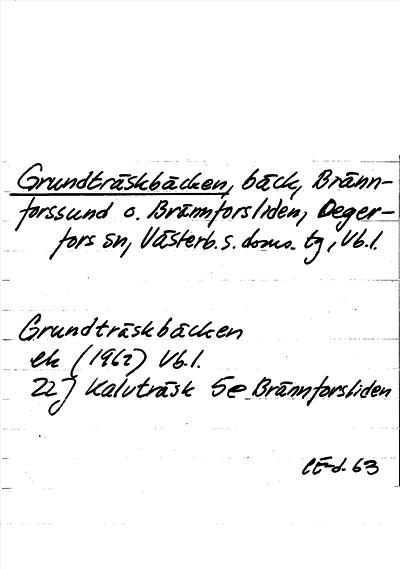 Grundträskbäcken, bäck, Bränn-
forssund o. Brännforsliden, Deger-
fors sn, Västerb. s. doms. tg, Vb. l.
Grundträskbäcken
ek (1962) Vb. l.
22J Kalvträsk 5e Brännforsliden
63